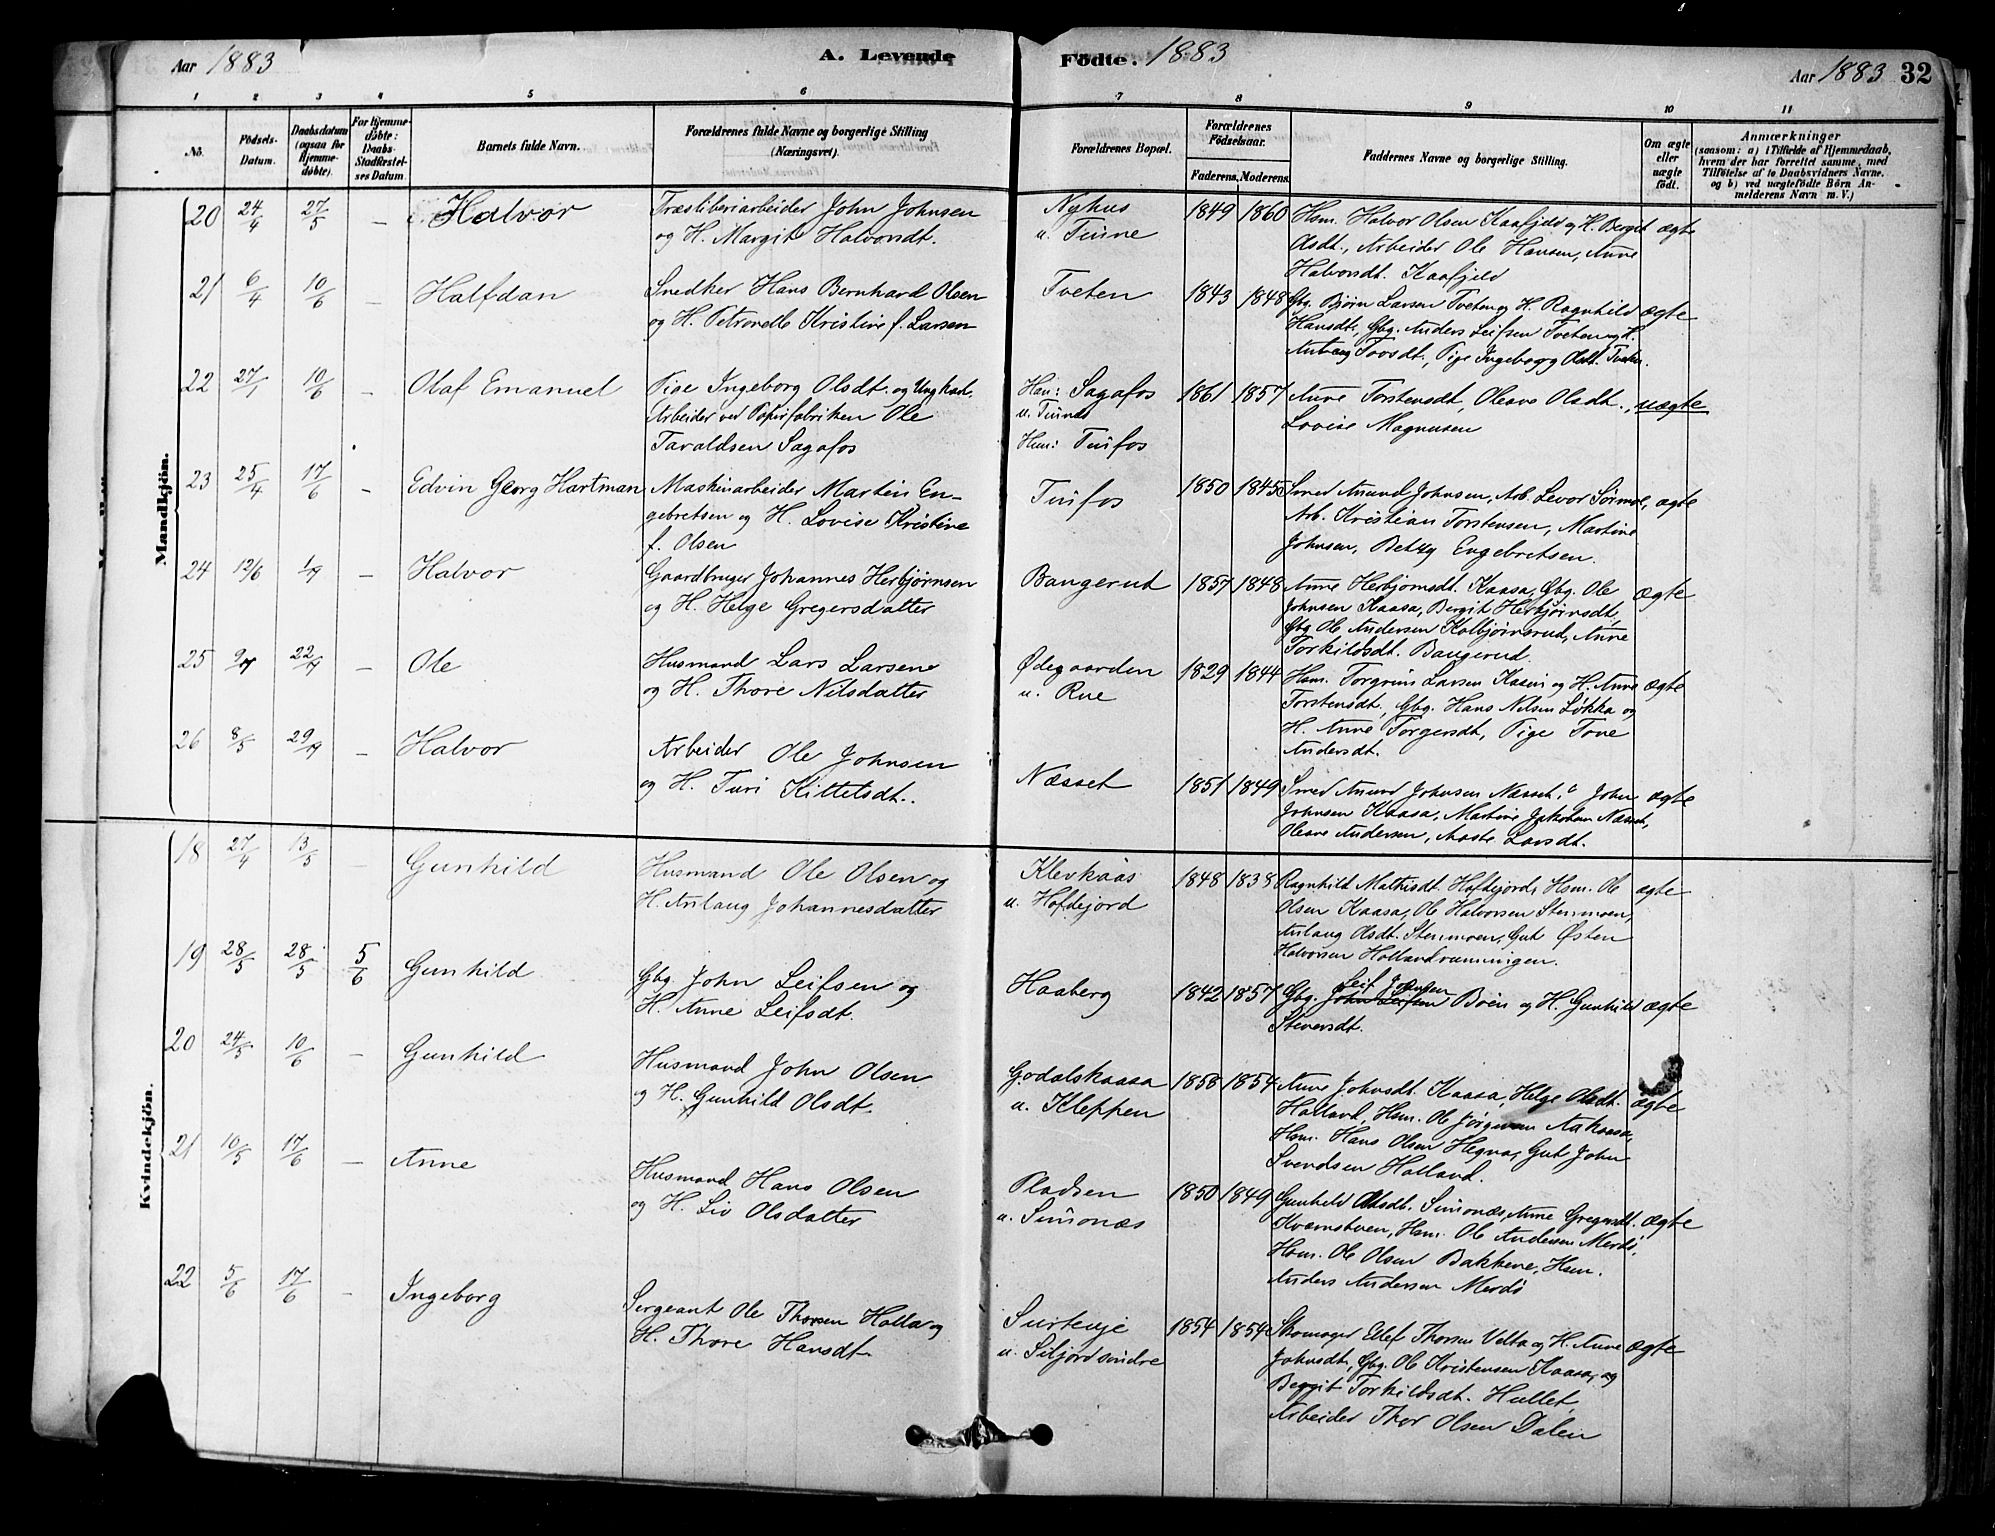 Aar 1883
A. Levende
Födte. 1883
Aar 1883 32
1 2 3 4 5 6 7 8 9 10 11
No.
Födsels-
Datum.
Daabsdatum
(ogsaa for
Hjemme-
döbte).
For Hjemme-
döbte:
Daabs-
Stadfæstel-
ses Datum
Barnets fulde Navn.
Forældrenes fulde Navne og borgerlige Stilling
(Næringsvei).
Forældrenes Bopæl.
Forældrenes
Födselsaar.
Faderens. Moderens.
Faddernes Navne og borgerlige Stilling.
Om ægte
eller
uægte
födt.
Anmærkninger
(saasom: a) i Tilfælde af Hjemmedaab,
hvem der har forrettet samme, med
Tilföielse af to Daabsvidners Navne.
og b) ved uægtefödte Börn An-
melderens Navn m. V.)
Mandkjön.
20 24/4 27/5 – Halvor
Træsliberiarbeider John Johnsen
og H. Margit Halvorsdt.
Nyhus
u. Tinne
1849 1860
Hsm. Halvor Olsen Kaafjeld og H. Bergit
Olsdt., Arbeider Ole Hansen, Anne
Halvorsdt. Kaafjeld
ægte
21 6/4 10/6 – Halfdan
Snedker Hans Bernhard Olsen
og H. Petronelle Kristine f. Larsen
Tveten
1843 1848
Gbg. Björn Larsen Tveten og H. Ragnhild
Hansdt., Gbg. Anders Leifsen Tveten og H.
Anlaug Tovsdt., Pige Ingeborg Olsdt. Tveten.
ægte
22 27/1 10/6 – Olaf Emanuel
Pige Ingeborg Olsdt. og Ungkarl.
Arbeider ved Papirfabriken Ole
Taraldsen Sagafos
Han: Sagafos
u. Tinnes
Hun: Tinfos
1861 1857
Anne Torstensdt., Oleane Olsdt.,
Lovise Magnusen
uægte
23 25/4 17/6 – Edvin Georg Hartman
Maskinarbeider Martin En-
gebretsen og H. Lovise Kristine
f. Olsen
Tinfos
1850 1845
Smed Amund Johnsen, Arb. Levor Sörmoe,
Arb. Kristian Torstensen, Martine
Johnsen, Betzy Engebretsen.
ægte
24 12/6 1/9 – Halvor
Gaardbruger Johannes Herbjørnsen
og H. Helge Gregersdatter
Bangerud
1857 1848
Anne Herbjornsdt. Kaasa, Gbg. Ole
Johnsen Kaasa, Bergit Herbjørnsdt.,
Gbg. Ole Andersen Kolbjørnsrud, Anne
Torkildsdt. Bangerud.
ægte
25 9/7 22/9 – Ole
Husmand Lars Larsen
og H. Thore Nilsdatter
Ødegaarden
u. Rue
1829 1844
Hsm. Torgrim Larsen Kaasin og H. Anne
Torstensdt., Gbg. Hans Nilsen Løkka og
H. Anne Torgersdt., Pige Tone
Andersdt.
ægte
26 8/5 29/9 – Halvor
Arbeider Ole Johnsen
og H. Turi Kittelsdt.
Næsset
1851 1849
Smed Amund Johnsen Næsset, John
Johnsen Kaasa, Martine Jakobsen Næsset,
Oleane Andersen, Aaste Larsdt.
ægte
Kvindekjön.
18 27/4 13/5 – Gunhild
Husmand Ole Olsen og
H. Anlaug Johannesdatter
Klevkaas
u. Hoftejord
1848 1838
Ragnhild Mathisdt. Hoftejord, Hsm. Ole
Olsen Kaasa, Ole Halvorsen Stenmoen,
Anlaug Olsdt. Stenmoen, Gut Østen
Halvorsen Hollandrønningen.
ægte
19 28/5 28/5 5/6 Gunhild
Gbg John Leifsen og
H. Anne Leifsdt.
Haaberg
1842 1857
Gbg. John Leifsen Leif Johnsen Boen og H. Gunhild
Stenersdt.
ægte
20 24/5 10/6 – Gunhild
Husmand John Olsen
og H. Gunhild Olsdt.
Godalskaasa
u. Kleppen
1858 1854
Anne Johnsdt. Kaasa, Helge Olsdt.
Holland, Hsm. Ole Jørgensen Aakaasa,
Hsm. Hans Olsen Hegna, Gut John
Svendsen Holland.
ægte
21 10/5 17/6 – Anne
Husmand Hans Olsen
og H. Liv Olsdatter
Pladsen
u. Simonæs
1850 1849
Gunhild Olsdt. Simonæs, Anne Gregersdt.
Kvernstuen, Hsm. Ole Andersen Merdö,
Hsm. Ole Olsen Bakkene, Hsm.
Anders Andersen Merdö
ægte
22 5/6 17/6 – Ingeborg
Sergeant Ole Thorsen Holla og
H. Thore Hansdt.
Surteuje
u. Siljordsøndre
1854 1854
Skomager Ellef Thorsen Velta og H. Anne
Johnsdt., Gbg. Ole Kristensen Kaasa, og
Bergit Torkildsdt. Hullet,
Arbeider Thor Olsen Dalen
ægte